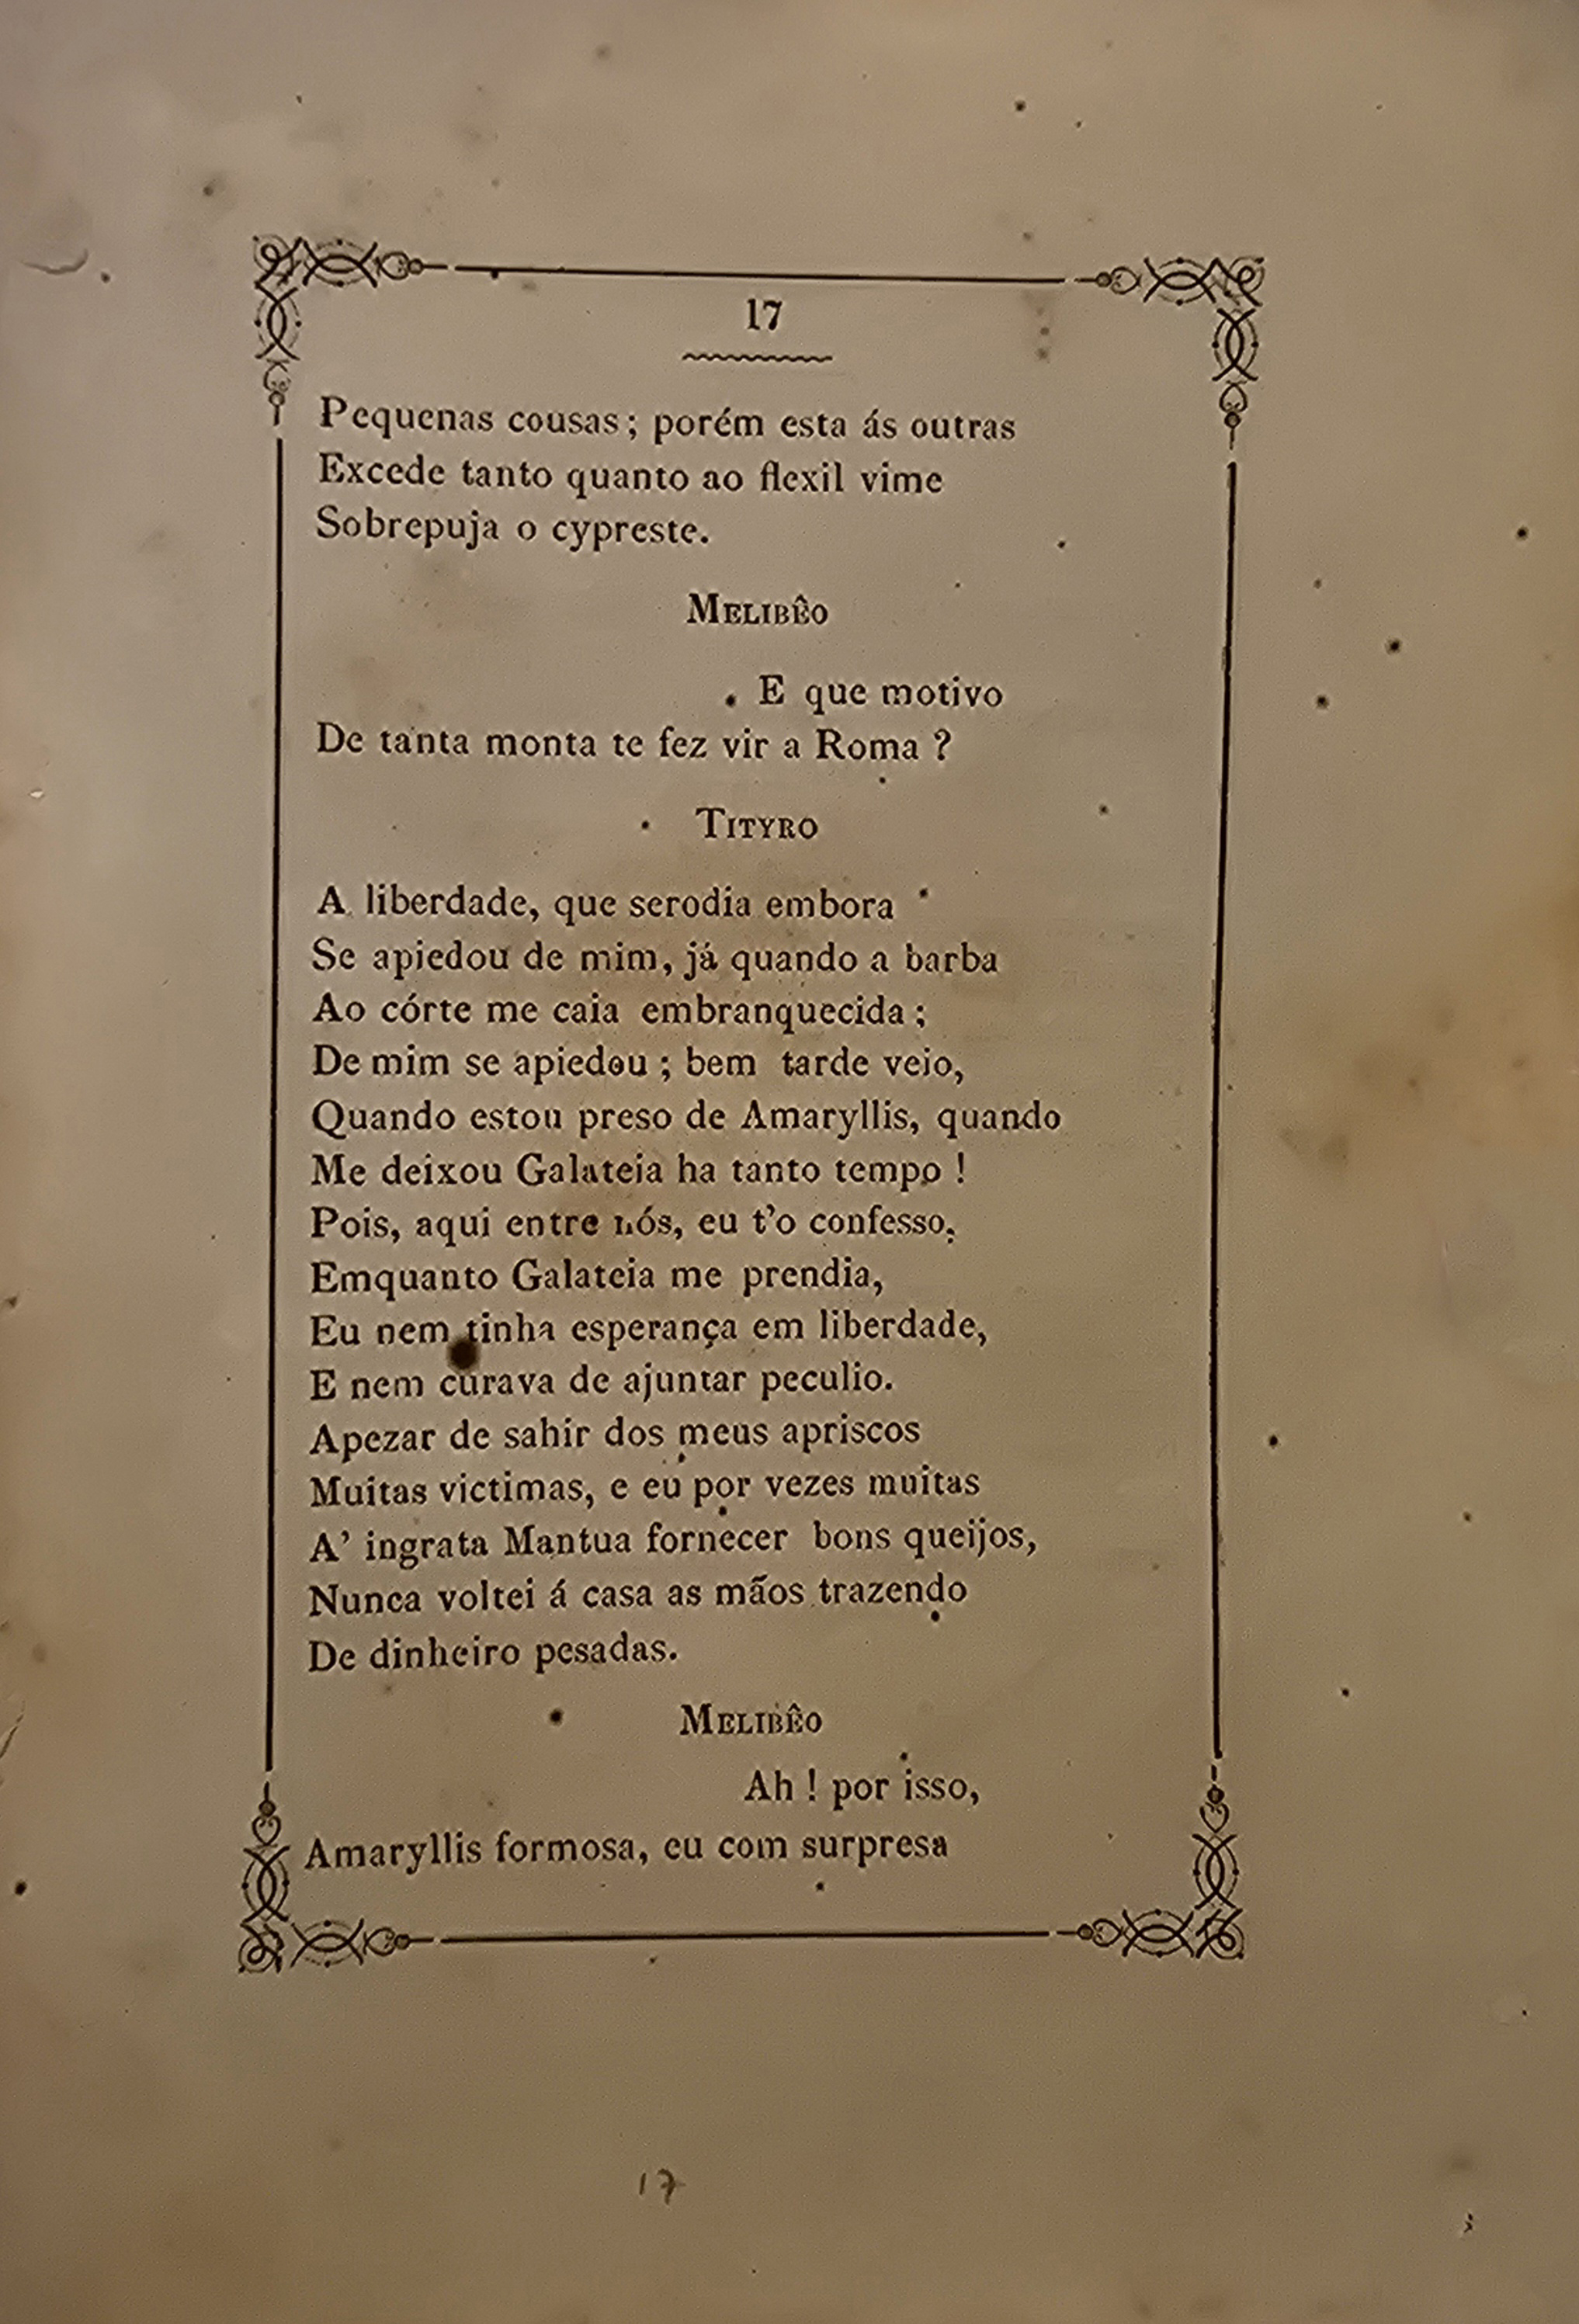 17
Pequenas cousas; porém esta ás outras
Excede tanto quanto ao flexil vime
Sobrepuja o cypreste.
MELIBÊO
E que motivo
De tanta monta te fez vir a Roma ?
TITYRO
A liberdade, que serodia embora
Se apiedou de mim, já quando a barba
Ao córte me caia embranquecida ;
De mim se apiedou ; bem tarde veio,
Quando estou preso de Amaryllis, quando
Me deixou Galateia ha tanto tempo !
Pois, aqui entre nós, eu t'o confesso,
Emquanto Galateia me prendia,
Eu nem tinha esperança em liberdade,
E nem curava de ajuntar peculio.
Apezar de sahir dos meus apriscos
Muitas victimas, e eu por vezes muitas
A' ingrata Mantua fornecer bons queijos,
Nunca voltei á casa as mãos trazendo
De dinheiro pesadas.
MELIBÊO
Ah ! por isso,
Amaryllis formosa, eu com surpresa
17